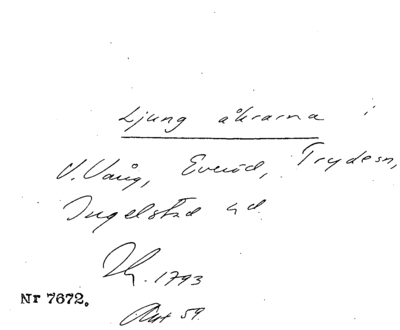 Ljung åkrarna i
V. Vång, Everöd, Trydesn,
Ingelstad hd.
1793
Nr 7672.
Akt 59.